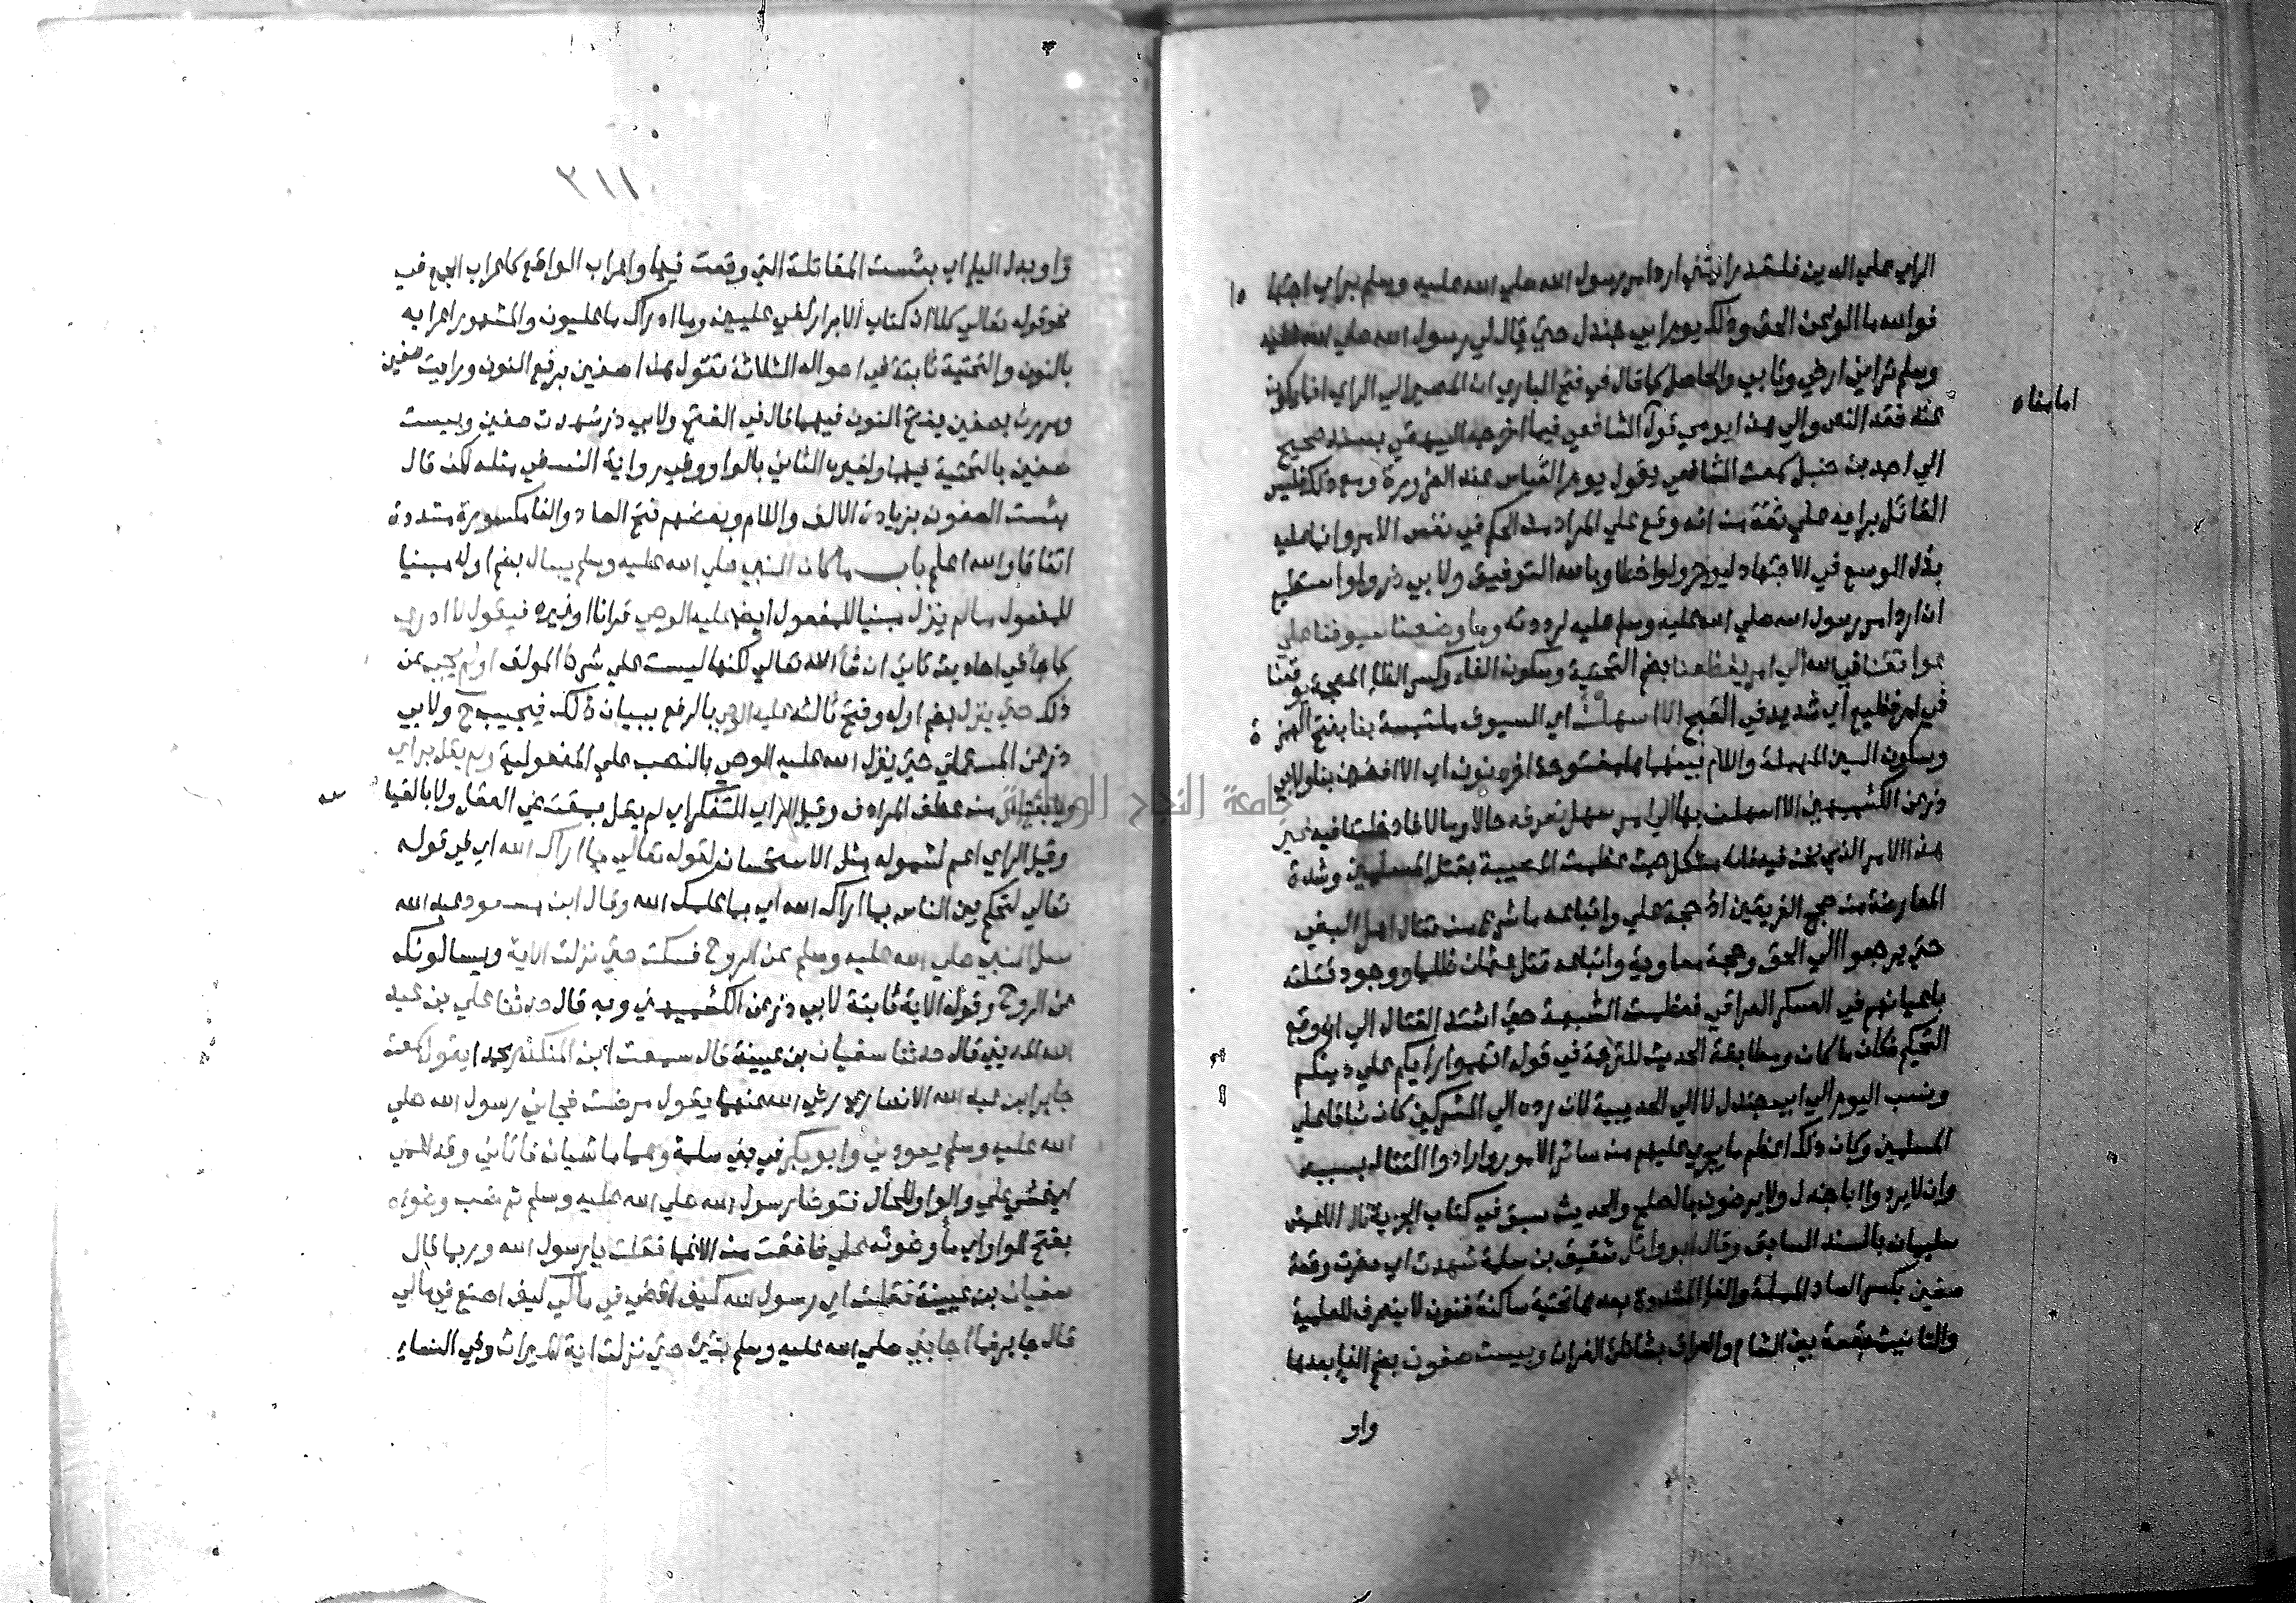 الراي علي الدين فلقد رايتني ارد امر رسول الله صلي الله عليه وسلم براي اجتها دا
فوالله ما الو عن الحق وذلك يوم ابي جندل حتي قال لي رسول الله صلي الله عليه
وسلم تراني ارضي وتابي والحاصل كما قال في فتح الباري ان المصير الي الراي انما يكون
عند فقد النص والي هذا يومي قول الشافعي فيما اخرجه البيهقي بسند صحيح
الي احمد بن حنبل سمعت الشافعي يقول يوم القياس عند الضرورة ومع ذلك فليس
القائل برايه علي ثقة من انه وقع علي المراد من الحكم في نفس الامر وانما عليه
بذل الوسع في الاجتهاد ليوجر ولو اخطا وبالله التوفيق ولابي ذر ولو استطيع
ان ارد امر رسول الله صلي الله عليه وسلم عليه لرددته وما وضعنا سيوفنا علي
عواتقنا في الله الي امر يفظعنا بضم التحتية وسكون الفاء وكسر الظا المعجمة يوقعنا
في امر فظيع اي شديد في القبح الا اسهلن اي السيوف ملتبسة بنا بفتح الهمز ة
وسكون السين المهملة واللام بينهما ها مفتوحة اخره نون اي الا افضين بنا ولابي
ذر عن الكشميهني الا اسهلن بها الي امر سهل نعرفه حالا ومالا فادخلتنا فيه غير
هذا الامر الذي نحن فيه فانه مشكل حيث عظمت المصيبة بقتل المسلمين وشدة
المعارضة من حجج الفريقين اذ حجة علي واتباعه ما شرع من قتال اهل البغي
حتي يرجعوا الي الحق وحجة معاوية واتباعه قتل عثمان ظلما ووجود قتلته
باعيانهم في العسكر العراقي فعظمت الشبهة حتي اشتد القتال الي ان وقع
التحكيم فكان ما كان ومطابقة الحديث للترجمة في قوله اتهموا رايكم علي دينكم
ونسب اليوم الي ابي جندل لا الي الحديبية لان رده الي المشركين كان شاقا علي
المسلمين وكان ذلك اعظم ما جري عليهم من سائر الامور وارادوا القتال بسببه
وان لا يردوا ابا جندل ولا يرضون بالصلح والحديث سبق في كتاب الجزية قال الاعمش
سليمان بالسند السابق وقال ابو وائل شقيق بن سلمة شهدت اي حضرت وقعة
صفين بكسر الصاد المهملة والفا المشددة بعدها تحتية ساكنة فنون لا ينصرف للعلمية
والتانيث بقعة بين الشام والعراق بشاطئ الفرات وبيست صفون بضم الفا بعدها
واو
امامناه
٣١١
واو بدل اليا اي بئست المقاتلة التي وقعت فيها واعراب الواقع كاعراب الجمع في
نحو قوله تعالي كلا ان كتاب الابرار لفي عليين وما ادراك ما عليون والمشهور اعرابه
بالنون والتحتية ثابتة في احواله الثلاثة تقول هذه صفين برفع النون ورايت صفين
ومررت بصفين بفتح النون فيهما قال في الفتح ولابي ذر شهدت صفين وبيست
صفين بالتحتية فيهما ولغيره الثاني بالواو وفي رواية النسفي مثله لكن قال
بئست الصفون بزيادة الالف واللام وبعضهم فتح الصاد والفا مكسورة مشددة
اتفاقا والله اعلم باب ما كان النبي صلي الله عليه وسلم يسال بضم اوله مبنيا
للمفعول مما لم ينزل مبنيا للمفعول ايضا عليه الوحي قرانا او غيره فيقول لا ادري
كما جا في احاديث تاتي ان شا الله تعالي لكنها ليست علي شرط المولف او لم يجب عن
ذلك حتي ينزل بضم اوله وفتح ثالثه عليه الوحي بالرفع ببيان ذلك فيجيب ح ولابي
ذر عن المستملي حتي ينزل الله عليه الوحي بالنصب علي المفعولية ولم يقل براي
ولا بقياس من عطف المرادف وقيل الراي التفكر اي لم يقل بمقتضي العقل ولا بالقيا س
وقيل الراي اعم لشموله مثل الاستحسان لقوله تعالي بما اراك الله اي في قوله
تعالي لتحكم بين الناس بما اراك الله اي بما علمك الله وقال ابن مسعود عبد الله
سئل النبي صلي الله عليه وسلم عن الروح فسكت حتي نزلت الاية ويسالونك
عن الروح وقوله الاية ثابتة لابي ذر عن الكشميهني وبه قال حدثنا علي بن عبد
الله المديني قال حدثنا سفيان بن عيينة قال سمعت ابن المنكدر محمدا يقول سمعت
جابر ابن عبد الله الانصاري رضي الله عنهما يقول مرضت فجاني رسول الله صلي
الله عليه وسلم يعودني وابو بكر في بني سلمة وهما ماشيان فاتاني وقد اغمي
اي غشي علي والواو للحال فتوضا رسول الله صلي الله عليه وسلم ثم صب وضوءه
بفتح الواو اي ما وضوئه علي فافقت من الاغما فقلت يا رسول الله وربما قال
سفيان بن عيينة فقلت اي رسول الله كيف اقضي في مالي كيف اصنع في مالي
قال جابر فما اجابني صلي الله عليه وسلم بشئ حتي نزلت اية الميراث وفي النساء